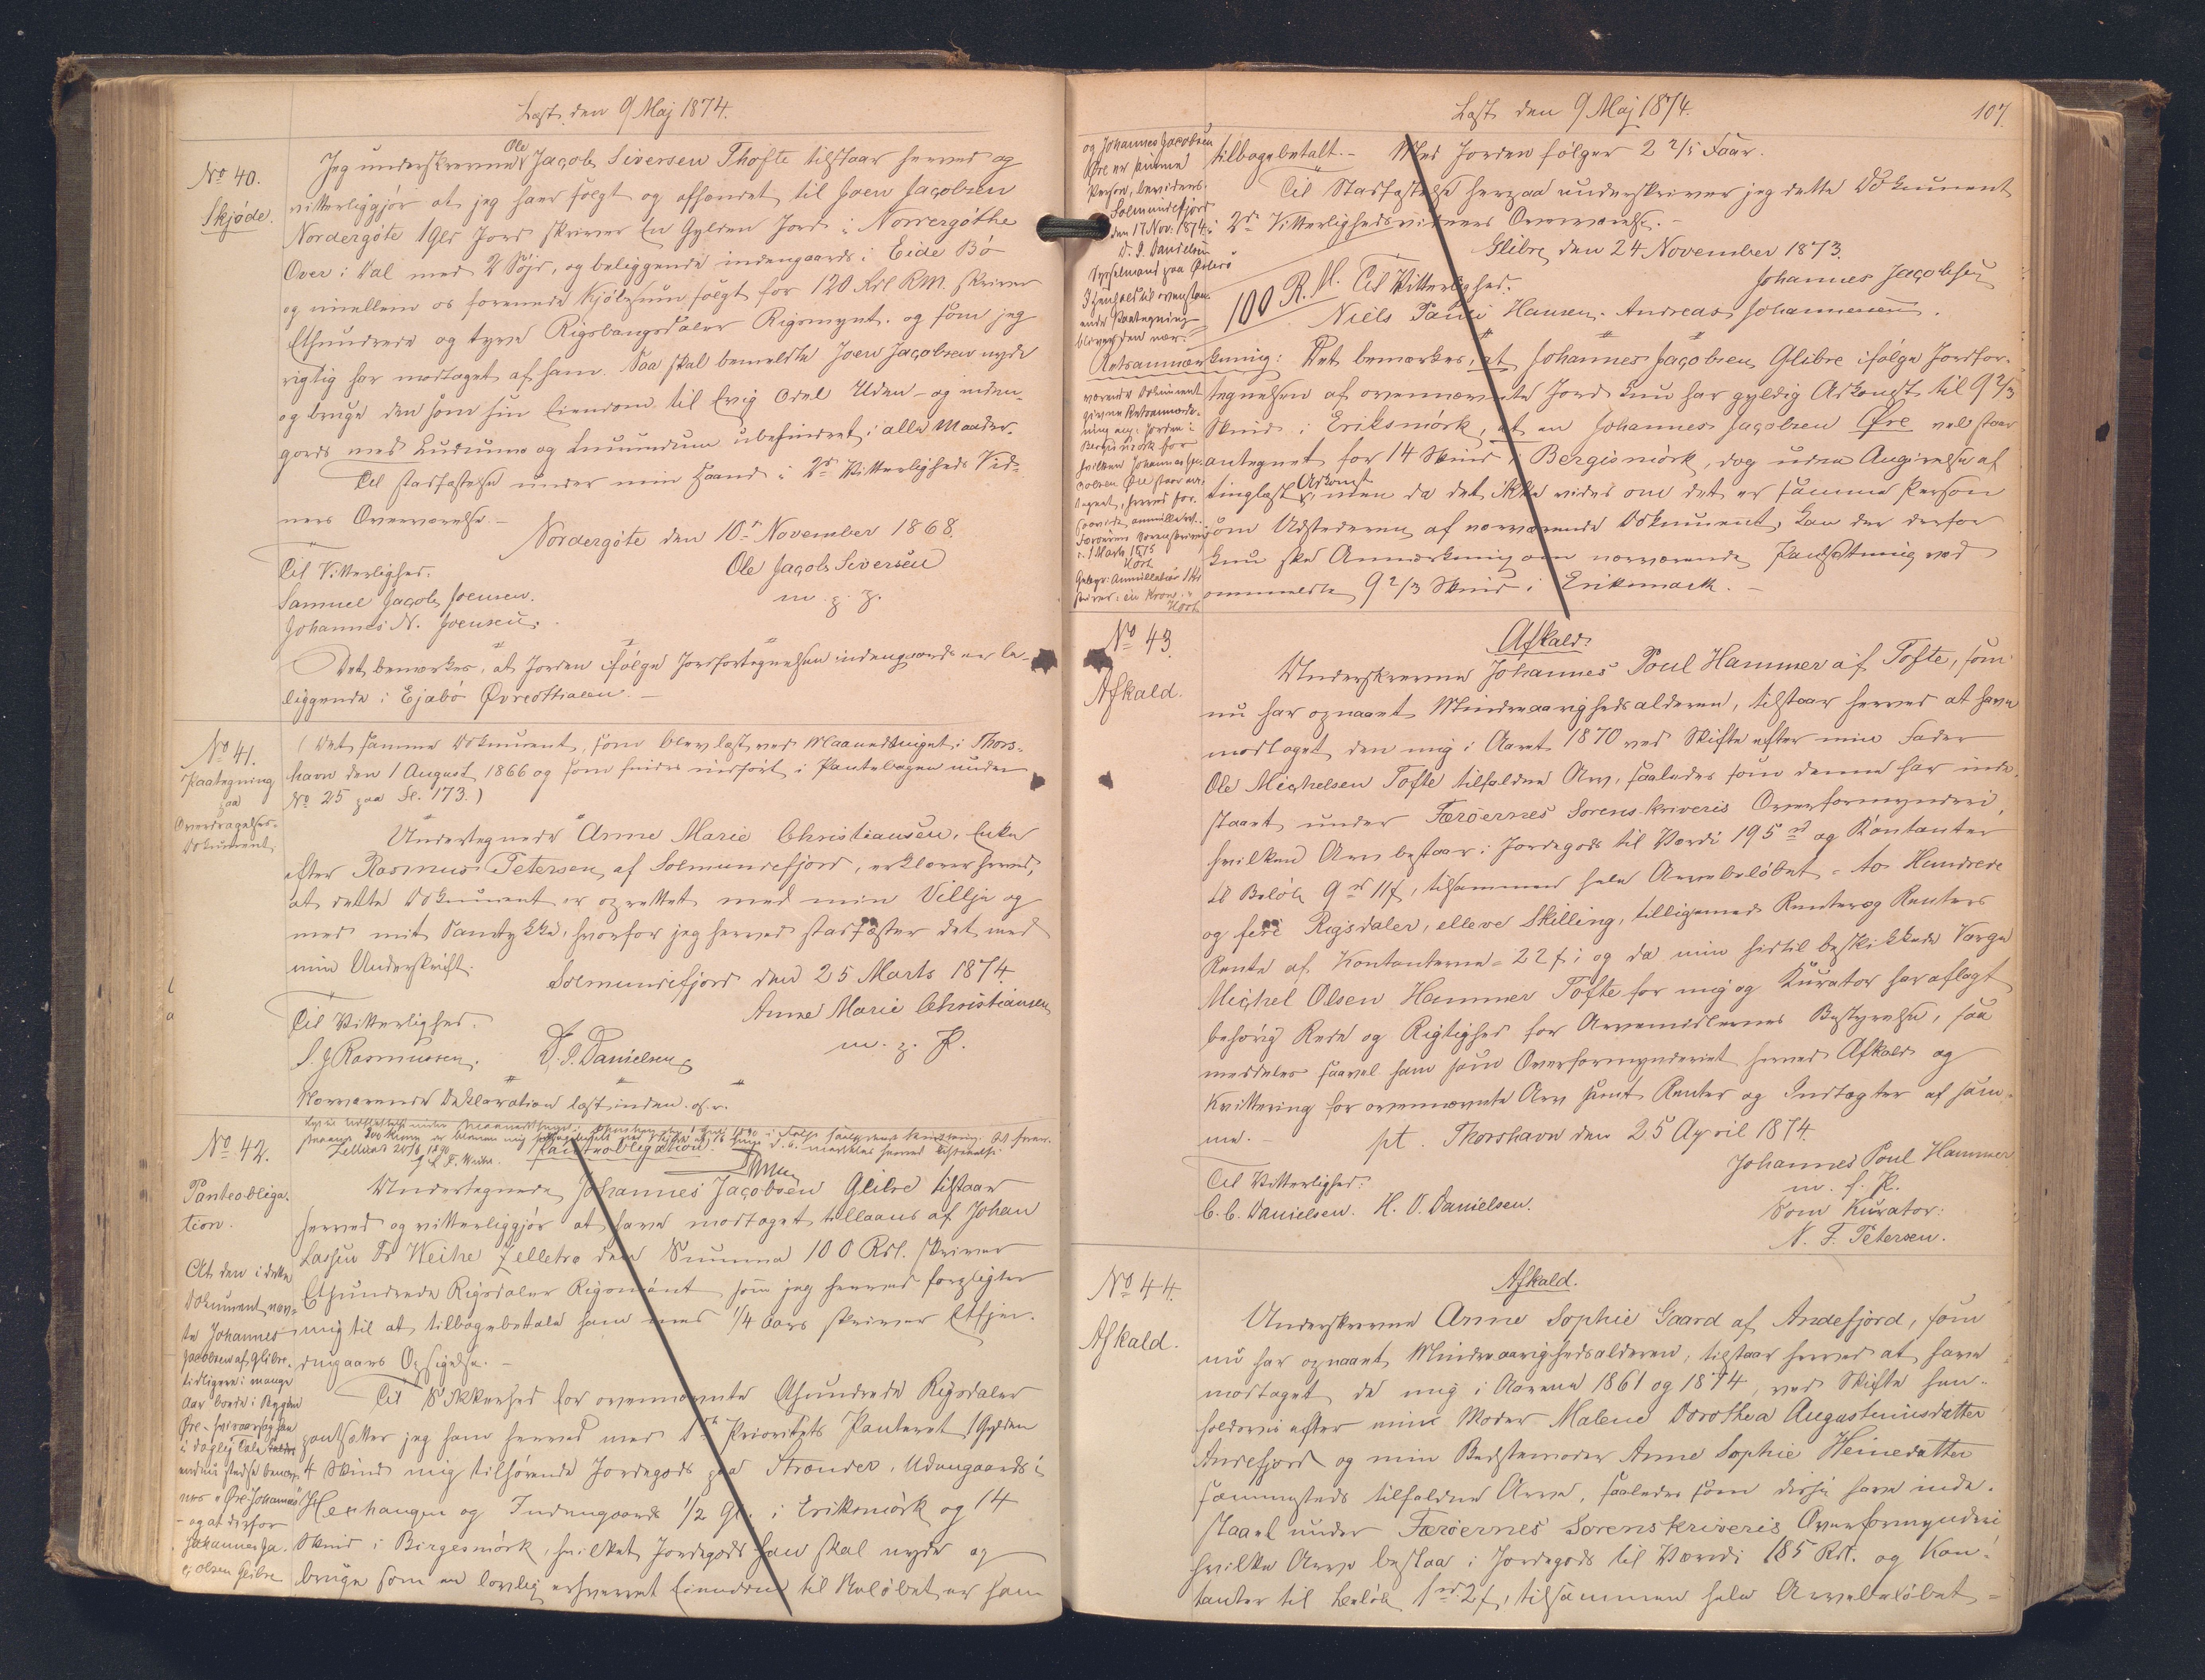 Læst den 9 Maj 1874.
No 40.
Skjöde.
Jeg underskrevne Ole Jacob Siversen Thofte tilstaar herved og
vitterliggjör at jeg haver solgt og afhændet til Joen Jacobsen
Nordergöte 1 Gld Jord skriver En Gylden Jord i Norrergöthe
Over i Dal med 2 Söjd, og beliggende indengaards i Eide Bö
og imellem os forenede Kjöbesum solgt for 120 Rdl RM. skriver
Ethundrede og tyve Rigsbangsdaler Rigsmynt. og som jeg
rigtig har modtaget af ham. Saa skal bemeldte Joen Jacobsen nyde
og bruge den som sin Eiendom til Evig Odel Uden- og inden-
gards med Ludum og Lunnindum ubehindret i alle Maader.
Til stadfæstelse under min Haand i 2de Vitterligheds Vid-
ners Overværelse. -
Nordergöte den 10de November 1868.
Til Vitterlighed:
Ole Jacob Siversen
Samuel Jacob Joensen.
m. p. p.
Johannes N. Joensen.
Det bemærkes, at Jorden ifölge Jordfortegnelsen indengaards er be-
liggende i Ejabö Øvredttialen. -
No 41.
Paategning
paa
Overdragelses-
Dokument
(Det samme Dokument, som blev læst ved Maanedstinget i Thors-
havn den 1 August 1866 og som findes indfört i Pantebogen under
No 25 paa Fl. 173.)
Undertegnede Anne Marie Christiansen, Enke
efter Rasmus Petersen af Solmundefjord, erklærer herved,
at dette Dokument er oprettet med min Villje og
med mit Samtykke, hvorfor jeg herved stadfæster det med
min Underskrift.
Solmundefjord den 25 Marts 1874.
Til Vitterlighed.
Anne Marie Christiansen
S. J. Rasmussen. D. J. Danielsen
m. p. P.
Nærværende Deklaration læst inden. o. s. v.
No 42.
Panteobliga-
tion.
Panteobligation.
Undertegnede Johannes Jacobsen Glibre tilstaar
herved og vitterliggjör at have modtaget tillaans af Johan
Lassen Fr Weihe Zelletræ den Summa 100 Rdl. skriver
Ethundrede Rigsdaler Rigsmönt som jeg herved forpligter
mig til at tilbagebetale ham med 1/4 Aars skriver Etfjer-
dingaars Opsigelse. -
Til Sikkerhed for ovennævnte Ethundrede Rigsdaler
pantsætter jeg ham herved med 1ste Prioritets Panteret 1 Gylden
4 Skind mig tilhörende Jordegods paa Strænder, Udengaards i
Hexhangen og Indengaards 1/2 Gl. i Eriksmörk og 14
Skind i Birgesmörk, hvilket Jordegods han skal nyde og
bruge som en lovlig erhvervet Eiendom til Belöbet er ham
At den i dette
Dokument næv-
te Johannes
Jacobsen af Glibre,
tidligere i mange
Aar boede i Bygden
Øre - hvoraarsag han
i daglig Tale
endnu stedse benæv-
nes "Øre-Johannes"
- og at derfor
Johannes Ja-
cobsen Glibre
Læst den 9 Maj 1874.
107.
og Johannes Jacobsen
Øre er samme
Person, bevidnes.
Solmundefjord
den 17 Nov: 1874.
D. J. Danielsen
Sysselmand paa Österö
I Henhold til ovenstaa-
ende Paategning
bliver den nær-
værende Dokument
givne Retsanmærk-
ning ang. Jorden i
Bergismörk for
hvilken Johannes Ja-
cobsen Øre staar an-
tegnet, herved for-
saavidt annulleret.
Færøernes Sorenskriveri
d. 1 Marts 1875
Horst
tilbagebetalt. - Med Jorden følger 2 2/5 Faar.
Til Stadfæstelse herpaa underskriver jeg dette Dokument
i 2de Vitterlighedsvidners Overværelse. -
Glibre, den 24 November 1873.
Johannes Jacobsen
100 R. M. Til Vitterlighed:
Niels Pauli Hansen. Andreas Johannesen.
Retsanmærkning: Det bemærkes, at Johannes Jacobsen Glibre ifølge Jordfor-
tegnelsen af ovennævnte Jord kun har gyldig Adkomst til 9 2/3
Skind i Eriksmörk, at en Johannes Jacobsen Øre vel staar
antegnet for 14 Skind i Bergismörk, dog uden Angivelse af
tinglæst Adkomst, men da det ikke vides om det er samme Person
som Udstederen af nærværende Dokument, kan der derfor
kun ske Anmærkning om nærværende Pantsætning ved
ommeldte 9 2/3 Skind i Eriksmørk. -
No 43.
Afkald.
Afkald.
Underskrevne Johannes Poul Hammer af Tofte, som
nu har opnaaet Mindreaarighedsalderen, tilstaar herved at have
modtaget den mig i Aaret 1870 ved Skifte efter min Fader
Ole Michelsen Tofte tilfaldne Arv, saaledes som denne har inde-
staaet under Færöernes Sorenskriveris Overformynderi,
hvilken Arv bestaar i Jordegods til Værdi 195 rd og Kontanter
til Belöb 9 rd 11 s, tilsammen hele Arvebelöbet = to Hundrede
og fire Rigsdaler, elleve Skilling, tilligemed Renter og Renters
Rente af Kontanterne = 22 s; og da min hertil beskikkede Værge
Michel Olsen Hammer Tofte for mig og Kurator har aflagt
behörig Rede og Rigtighed for Arvemidlernes Bestyrelse, saa
meddeles saavel ham som Overformynderiet herved Afkald og
Kvittering for ovennævnte Arv samt Renter og Indtægter af sam-
me.
pt. Thorshavn den 25 April 1874.
Til Vitterlighed:
Johannes Poul Hammer
m. f. P.
C. C. Danielsen. H. O. Danielsen.
Som Kurator:
N. F. Petersen.
No 44.
Afkald.
Afkald.
Underskrevne Anne Sophie Gaard af Andefjord, som
nu har opnaaet Mindreaarighedsalderen, tilstaar herved at have
modtaget de mig i Aarene 1861 og 1874, ved Skifte hen-
holdsvis efter min Moder Malene Dorothea Augustinusdatter
Andefjord og min Bedstemoder Anne Sophie Heinedatter
sammesteds tilfaldne Arve, saaledes som disse have inde-
staaet under Færöernes Sorenskriveris Overformynderi
hvilke Arve bestaa i Jordegods til Værdi 185 Rdl. og Kon-
tanter til Belöb 1 rd. 2 s, tilsammen hele Arvebelöbet =